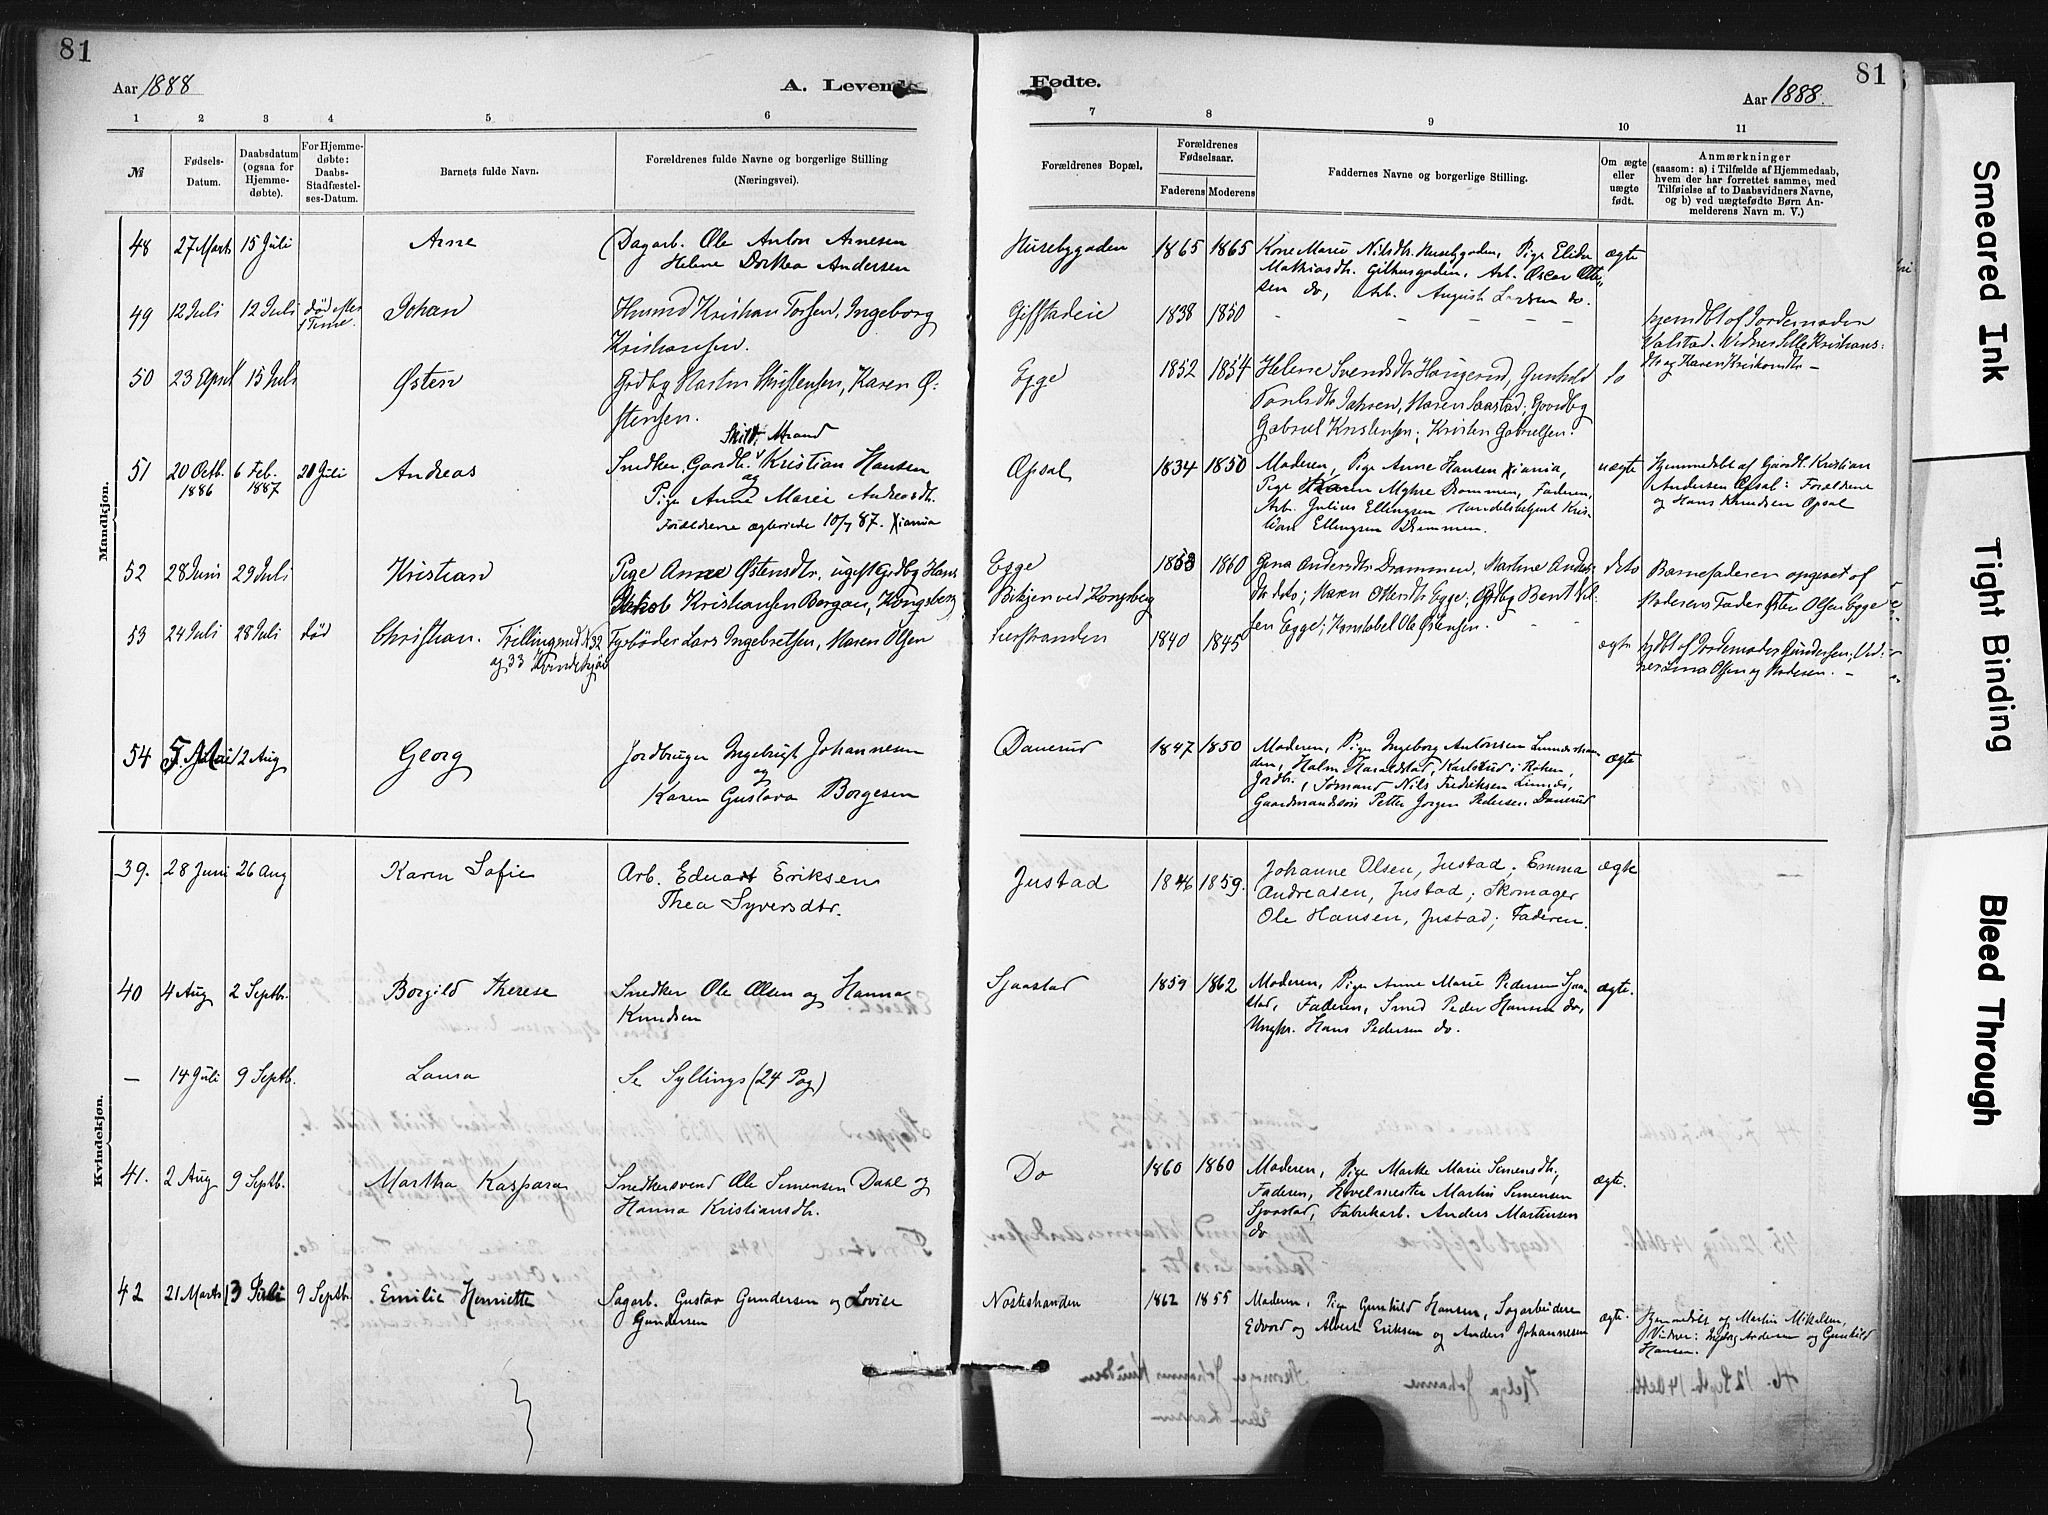 81
Aar 1888
A. Levende
1 2 3 4 5 6
№
Fødsels-Datum.
Daabsdatum (ogsaa for Hjemme-døbte).
For Hjemme-døbte: Daabs-Stadfæstel-ses-Datum.
Barnets fulde Navn.
Forældrenes fulde Navne og borgerlige Stilling
(Næringsvei).
Mandkjøn.
48 27 Marts 15 Juli Arne Dagarb. Ole Anton Arnesen
Helene Dorthea Andersen
49 12 Juli 12 Juli død efter 1 Time. Johan Husmd Kristian Torsen, Ingeborg
Kristiansen.
50 23 April 15 Juli Østen Grdbg Martin Kristensen, Karen Ø-
stensen.
Skilt, Strand
51 20 Octb. 1886 6 Feb. 1887 21 Juli Andreas Snedker, Gaardb. Kristian Hansen
og
Pige Anne Marie Andreasdtr.
Forældrene ægteviede 10/7 87. Xiania
52 28 Juni 29 Juli Kristian Pige Anne Østensdtr, ugift Grdbg Hans
Jakob Kristiansen Borgan, Kongsberg
53 24 Juli 28 Juli død Christian. Trelling med N 32
og 33 Kvindekjøn Fyrbøder Lars Ingebretsen, Maren Olsen
54 5 Mai 12 Aug Georg Jordbruger Ingebrigt Johannesen
og
Karen Gustava Borgesen
Kvindekjøn.
39. 28 Juni 26 Aug Karen Sofie Arb. Eduart Eriksen
Thea Syversdtr.
40 4 Aug 2 Septbr. Borgild Therese Snedker Ole Olsen og Hanna
Knudsen
— 14 Juli 9 Septb. Laura Se Syllings (24 Pag)
41. 2 Aug 9 Septb. Martha Kaspara Snedkersvend Ole Simensen Dahl og
Hanna Kristiansdtr.
42 21 Marts 13 Juli 9 Septb. Emilie Henriette Sagarb. Gustav Gundersen og Lovise
Gundersen
Fødte.
81
Aar 1888.
7 8 9 10 11
Forældrenes Bopæl.
Forældrenes Fødselsaar.
Faderens Moderens
Faddernes Navne og borgerlige Stilling.
Om ægte eller uægte født.
Anmærkninger
(saasom: a) i Tilfælde af Hjemmedaab,
hvem der har forrettet samme, med
Tilføielse af to Daabsvidners Navne,
og b) ved uægtefødte Børn An-
melderens Navn m. V.)
Husebygaden 1865 1865 Kone Marie Nilsdtr. Husebygaden, Pige Elida ægte
Mathiasdtr. Gilhusgaden, Arb. Oscar Otte-
sen do, Arb. August Larsen do.
Gifstadeie 1838 1850 - - - - - hjemdbt af Jordemoderen
Valstad. Vidner Sille Kristians-
dtr og Karen Kristiansdtr –
Egge 1852 1854 Helene Svendsdtr Haugerud, Gunhild do
Jahren, Maren Saastad; Gaardbg
Gabriel Kristensen; Kristen Gabrielsen.
Opsal 1834 1850 Moderen, Pige Anne Hansen Xiania, uægte Hjemmedøbt af Gaardb. Kristian
Pige Karen Myhre Drammen, Faderen, Andersen Opsal: Forældrene
Arb. Julius Ellingsen Handelsbetjent Kris- og Hans Knudsen Opsal
tian Ellingsen Drammen.
Egge 1858 1860 Gina Andersdtr Drammen, Martine Anders- dets Barnefaderen opgivet af
ved Kongsberg dtr dets; Maren Ottersdtr Egge; Grdbg Bent Nil- Moderens Fader Østen Olsen Egge
sen Egge; Konstabel Ole Østensen.
Lierstranden 1840 1845 - - ægte hjdbt af Jordemoder Gundersen, Vid-
ner Lina Olsen og Madsen. –
Dauerud 1847 1850 Moderen, Pige Ingeborg Antonsen Lierstran- ægte
den, Halm Haraldstad, Karlsrud i Roken,
Jordbr., Sømand Nils Fredriksen Linnes,
Gaardmandssøn Petter Jorgen Pedersen Dauerud
Justad 1846 1859. Johanne Olsen, Justad; Emma ægte —
Andreasen, Justad; Skomager
Ole Hansen, Justad; Faderen.
Sjaastad 1859 1862 Moderen, Pige Anne Marie Pedersen Sjaa- ægte.
stad, Faderen, Smed Peder Hansen do,
Ungkr. Hans Pedersen do.
Do 1860 1860 Moderen, Pige Marthe Marie Simensdtr, ægte.
Faderen, Høvelmester Martin Simensen
Sjaastad, Fabrikarb. Anders Martinsen
do
Nostestranden 1862 1855 Moderen, Pige Gunhild Hansen, Sagarbeidere ægte. Hjemmedøbt og Martin Mikelsen,
Edvard og Albert Eriksen og Anders Johannesen Vidner: Ingborg Andersen og Gunhild
Hansen.
Smeared Ink
Tight Binding
Bleed Through